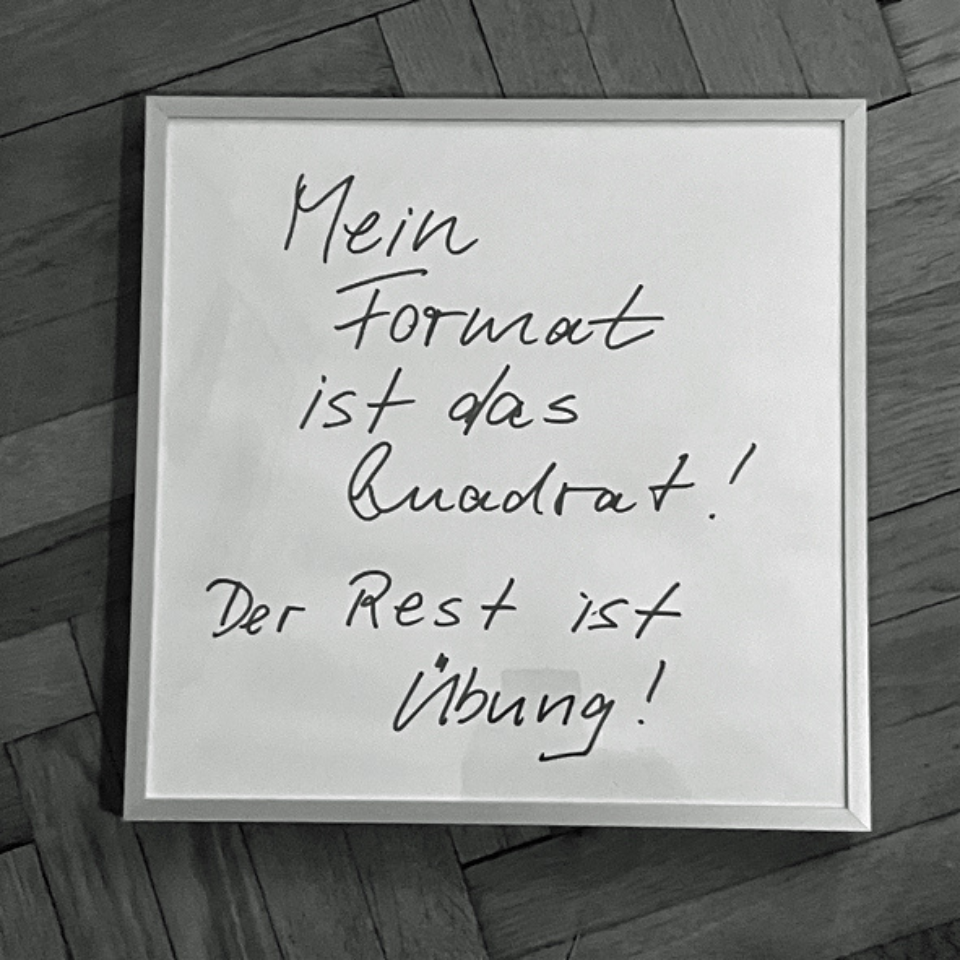 Mein
Format
ist das
Quadrat!
Der Rest ist
Übung!